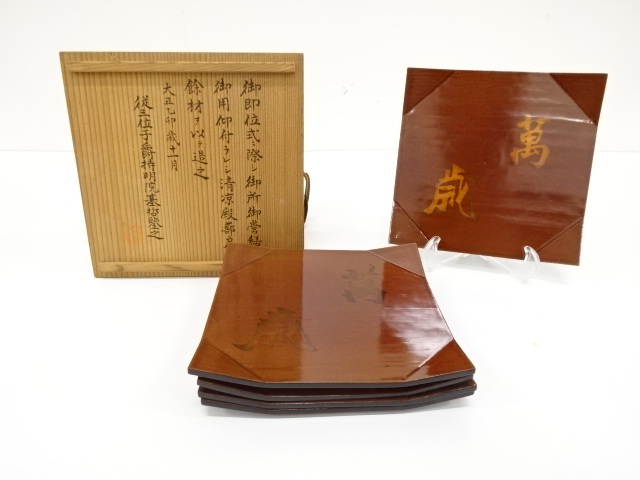 御即位式ニ際シ御所御営繕
御用仰付ラレシ清凉殿部
餘材ヲ以テ造之
大正乙卯歳十一月
従三位子爵持明院基哲鑒之
萬
歳
萬
歳